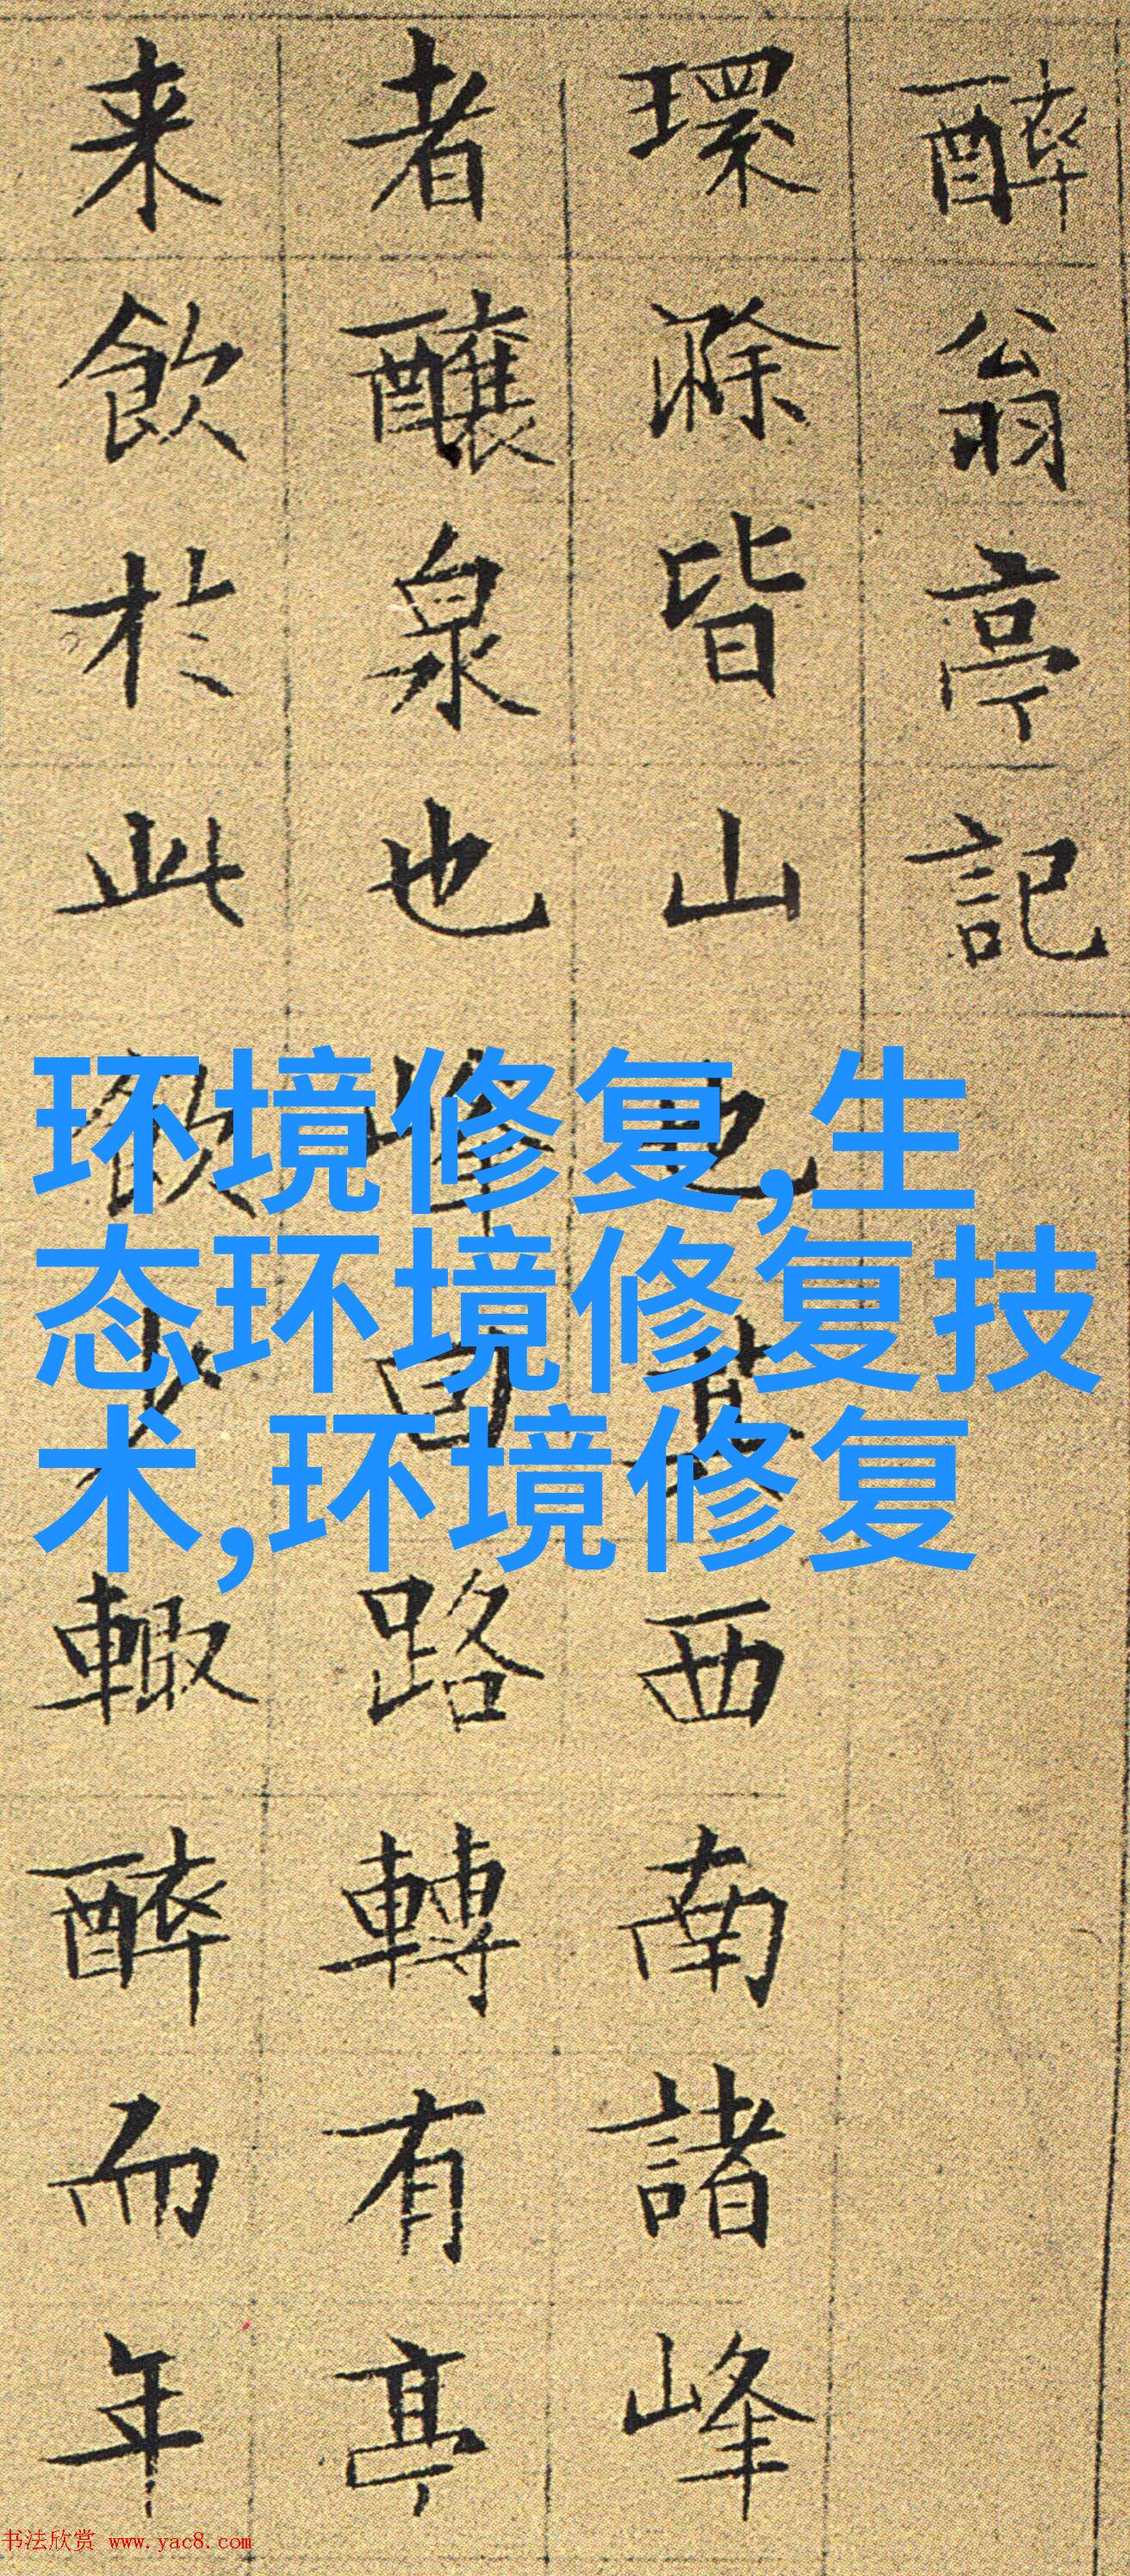 醉翁亭記
環滁皆山也其西南諸峰
者釀泉也峯回路轉有亭
来飲於此飲少輒醉而年
环境修复,生
态环境修复技
术,环境修复
书法欣赏 www.yac8.com